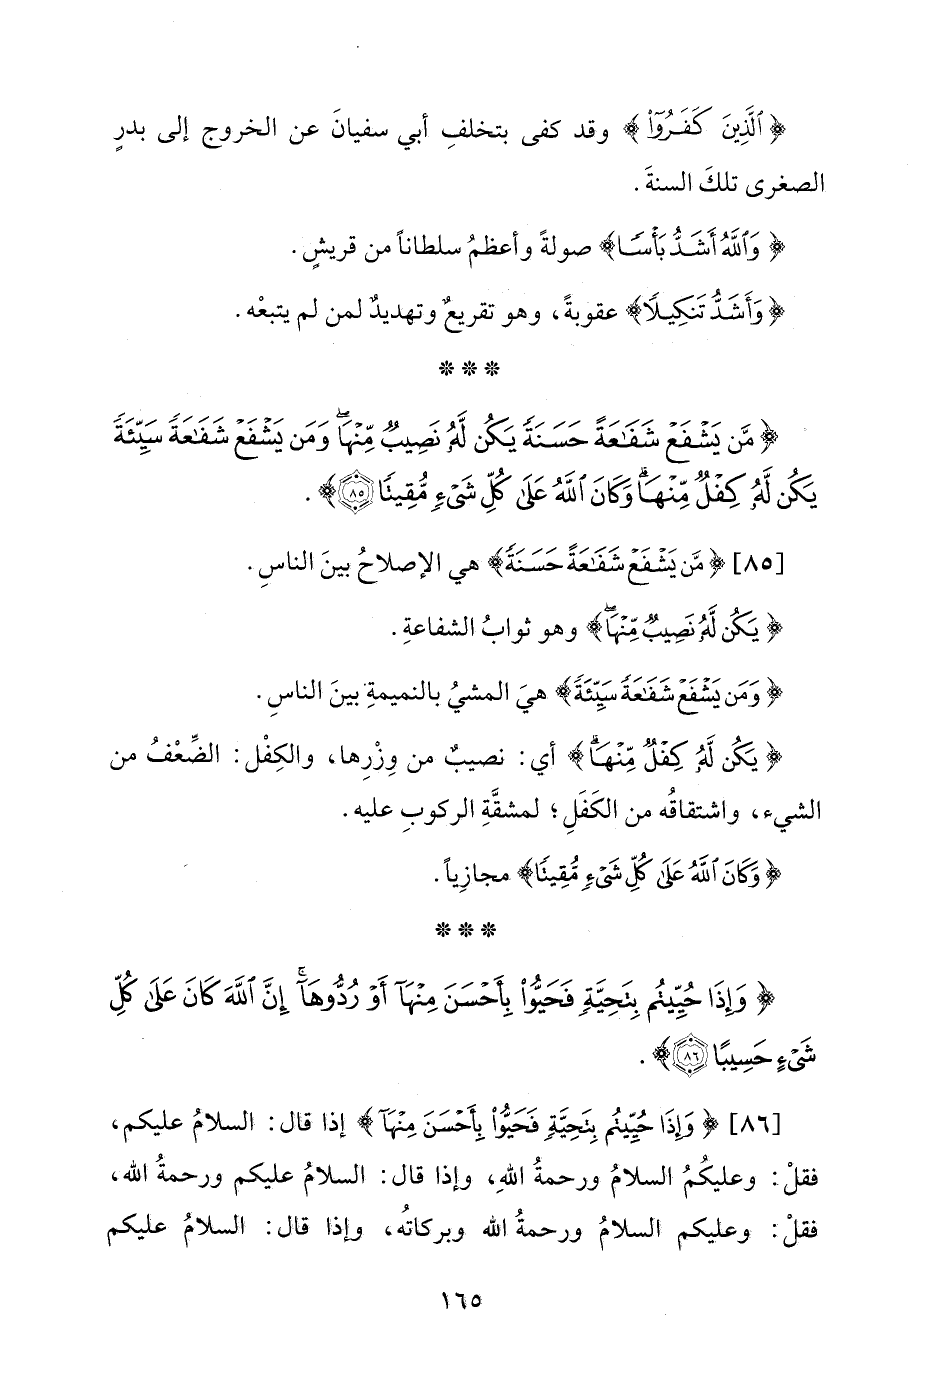 ﴿ ٱلَّذِينَ كَفَرُوا۟ ﴾ وقد كفى بتخلفِ أبي سفيانَ عن الخروج إلى بدرٍ
الصغرى تلكَ السنةَ .
﴿ وَٱللَّهُ أَشَدُّ بَأْسًا ﴾ صولةً وأعظمُ سلطاناً من قريشٍ .
﴿ وَأَشَدُّ تَنكِيلًا ﴾ عقوبةً، وهو تقريعٌ وتهديدٌ لمن لم يتبعْه .
* * *
﴿ مَّن يَشْفَعْ شَفَٰعَةً حَسَنَةً يَكُن لَّهُۥ نَصِيبٌ مِّنْهَا ۖ وَمَن يَشْفَعْ شَفَٰعَةً سَيِّئَةً
يَكُن لَّهُۥ كِفْلٌ مِّنْهَا ۗ وَكَانَ ٱللَّهُ عَلَىٰ كُلِّ شَىْءٍ مُّقِيتًا ٨٥ ﴾ .
[٨٥] ﴿ مَّن يَشْفَعْ شَفَٰعَةً حَسَنَةً ﴾ هي الإصلاحُ بينَ الناسِ .
﴿ يَكُن لَّهُۥ نَصِيبٌ مِّنْهَا ۖ ﴾ وهو ثوابُ الشفاعةِ .
﴿ وَمَن يَشْفَعْ شَفَٰعَةً سَيِّئَةً ﴾ هيَ المشيُ بالنميمةِ بينَ الناسِ .
﴿ يَكُن لَّهُۥ كِفْلٌ مِّنْهَا ۗ ﴾ أي: نصيبٌ من وِزْرِها، والكِفْل: الضِّعْفُ من
الشيء، واشتقاقُه من الكَفَلِ؛ لمشقَّةِ الركوبِ عليه .
﴿ وَكَانَ ٱللَّهُ عَلَىٰ كُلِّ شَىْءٍ مُّقِيتًا ﴾ مجازِياً .
* * *
﴿ وَإِذَا حُيِّيتُم بِتَحِيَّةٍ فَحَيُّوا۟ بِأَحْسَنَ مِنْهَآ أَوْ رُدُّوهَآ ۗ إِنَّ ٱللَّهَ كَانَ عَلَىٰ كُلِّ
شَىْءٍ حَسِيبًا ٨٦ ﴾ .
[٨٦] ﴿ وَإِذَا حُيِّيتُم بِتَحِيَّةٍ فَحَيُّوا۟ بِأَحْسَنَ مِنْهَآ ﴾ إذا قال: السلامُ عليكم،
فقلْ: وعليكُمُ السلامُ ورحمةُ اللهِ، وإذا قال: السلامُ عليكم ورحمةُ الله،
فقلْ: وعليكم السلامُ ورحمةُ الله وبركاتُه، وإذا قال: السلامُ عليكم
١٦٥